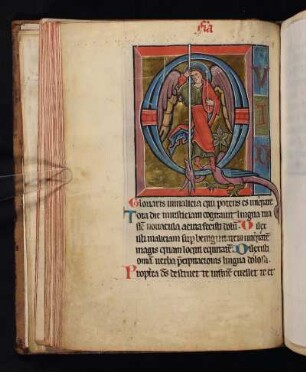 Q
V I D
Gloriaris in malicia qui potens es in iniqtate
Tota die iniusticiam cogitauit lingua tua
sic nouacula acuta fecisti dolum Dilex
isti maliciam sup benignitatem iniqtatem
magis quam loqui equitatem Dilexisti
omnia uerba precipitacionis lingua dolosa
Propterea deus destruet te in finem euellet te et